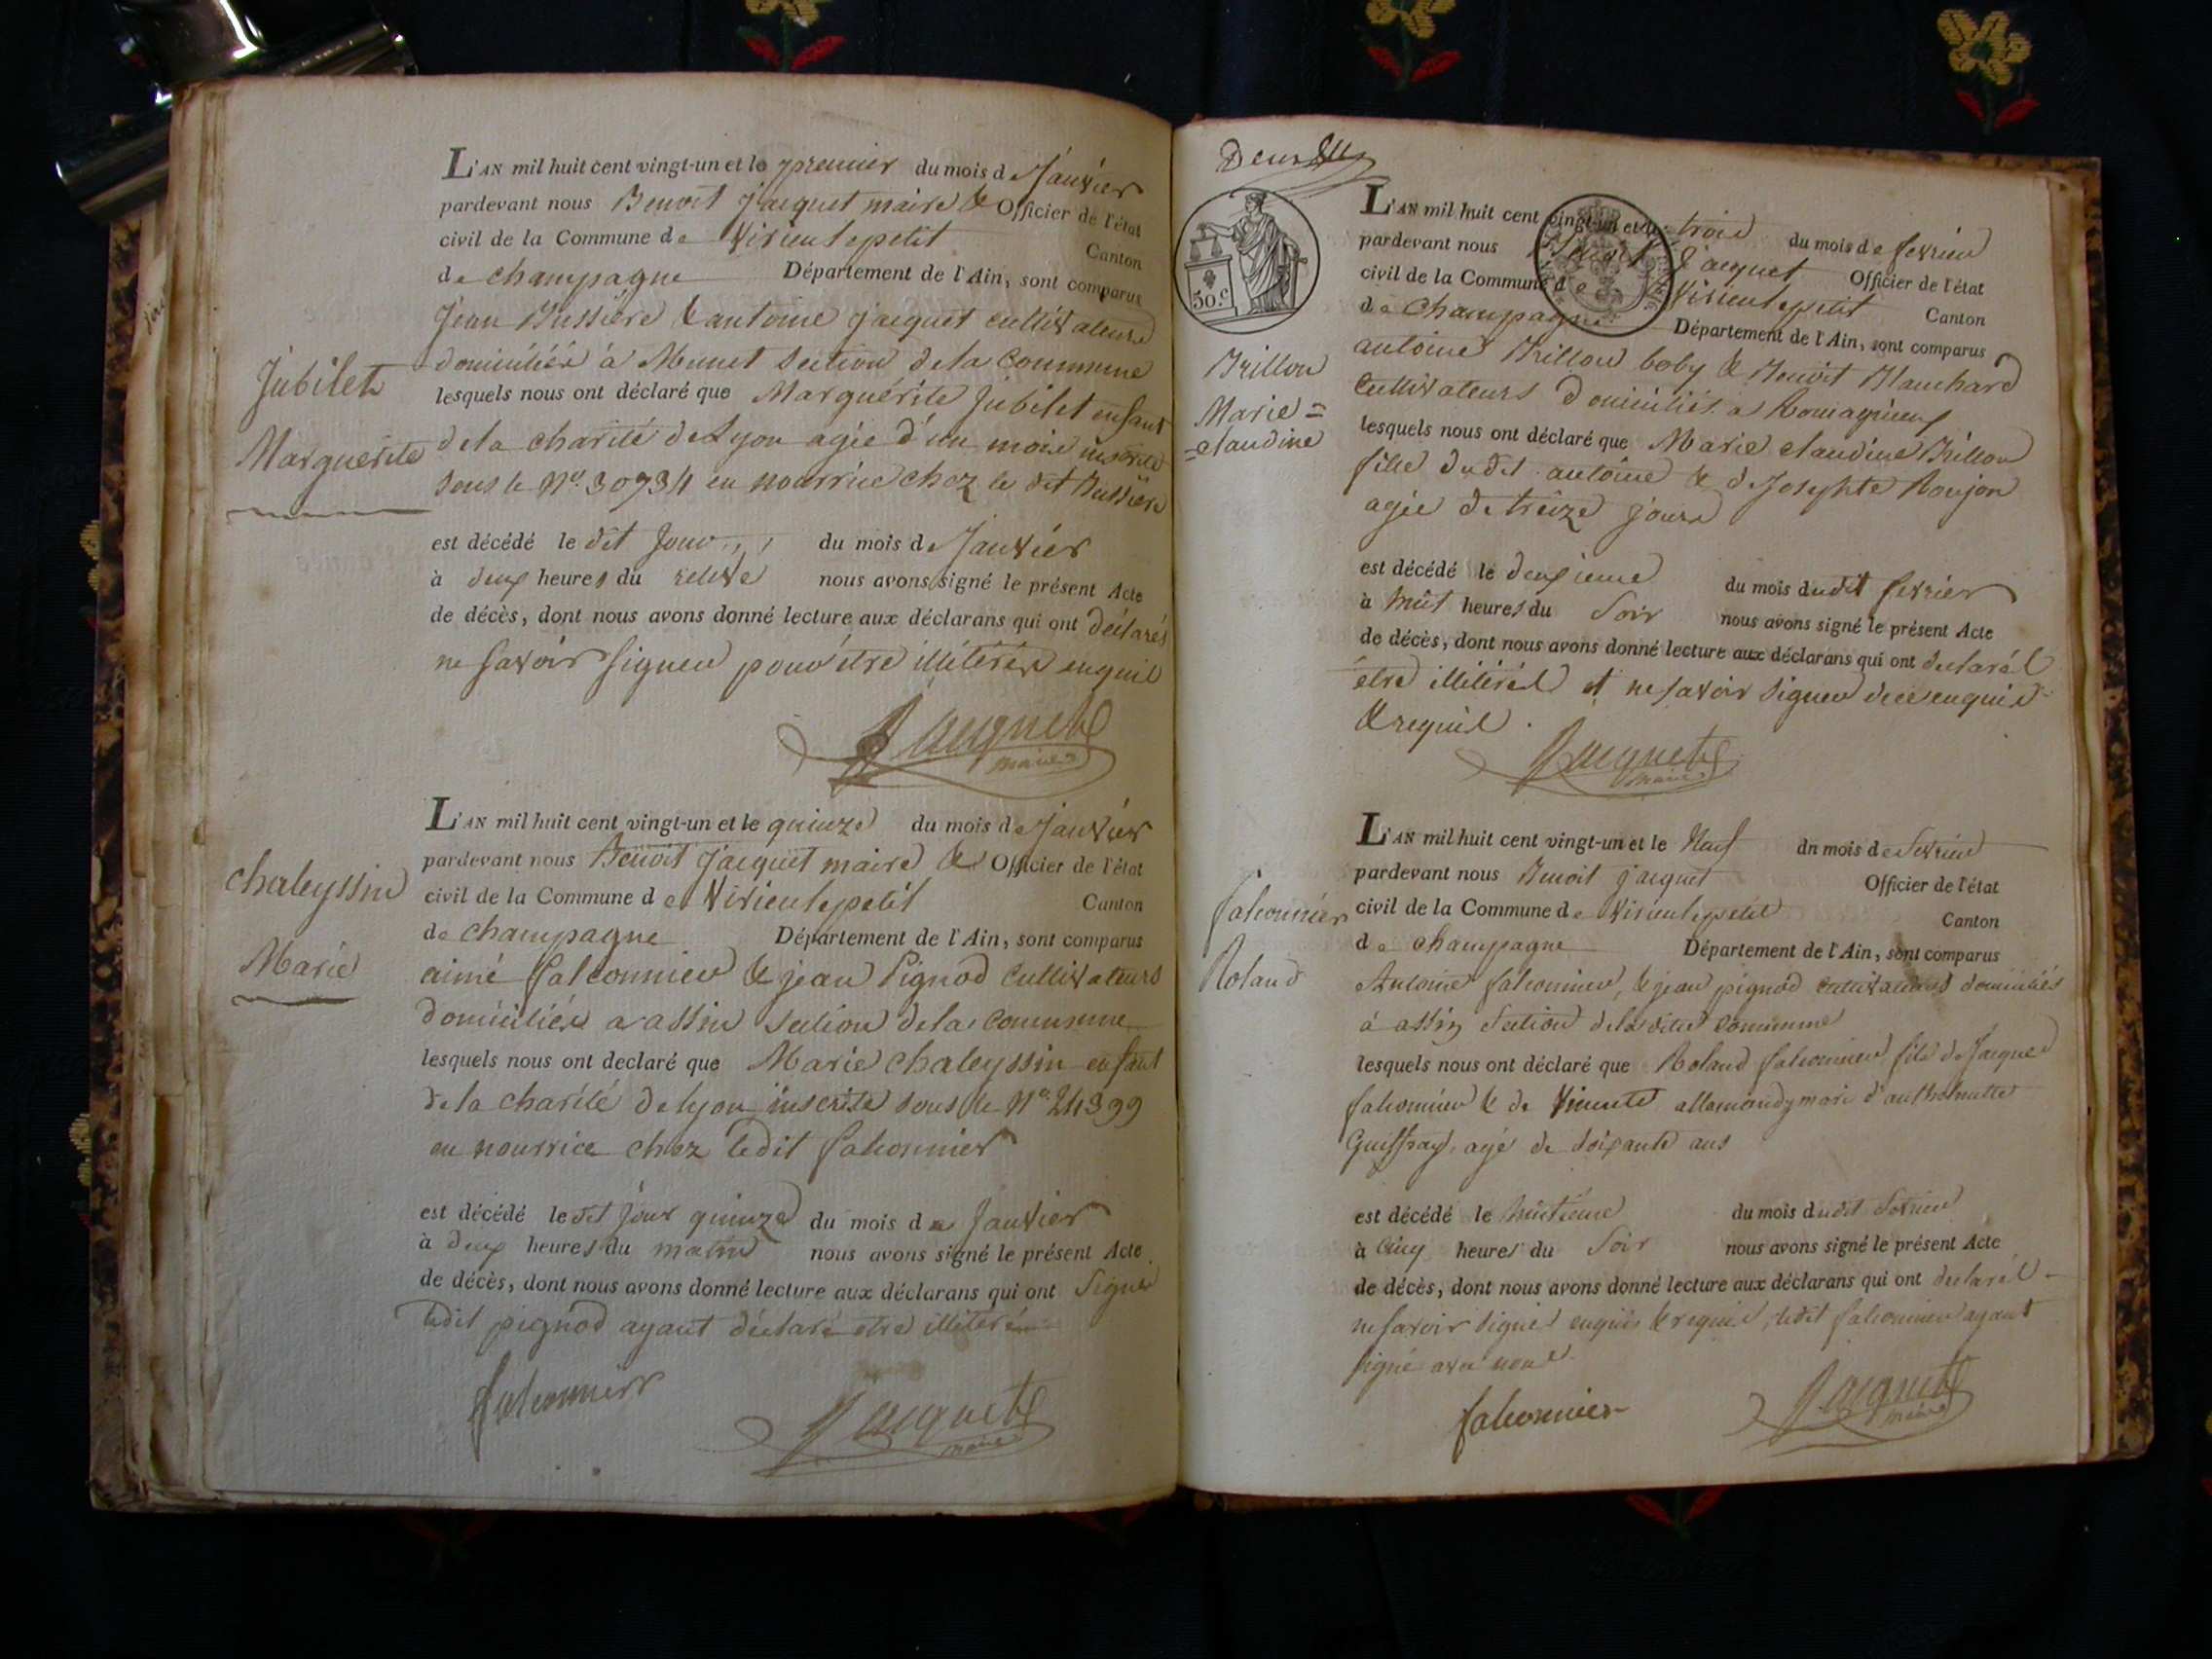 L'AN mil huit cent vingt-un et le premier du mois de Janvier
pardevant nous Benoit Jacquet maire & Officier de l'état
civil de la Commune de Virieu le petit Canton
de champagne Département de l'Ain, sont comparus
Jean Bussiere & antoine jacquet cultivateurs
domiciliés à Munet Section de la Commune
lesquels nous ont déclaré que Marguérite Jubilet enfant
de la charité de Lyon agée d'un mois inscrite
sous le N.o 30734 en nourrice chez le dit Bussiere
est décédé le dit jour du mois de Janvier
à deux heures du releve nous avons signé le présent Acte
de décès, dont nous avons donné lecture aux déclarans qui ont déclarés
ne savoir signer pour être illitérés enquis
Jacquet
maire
Jubilet
Marguerite
L'AN mil huit cent vingt-un et le quinze du mois de Janvier
pardevant nous Benoit Jacquet maire & Officier de l'état
civil de la Commune de Virieu le petit Canton
de champagne Département de l'Ain, sont comparus
aimé falconnier & jean Pignod Cultivateurs
domiciliés a assin Section de la Commune
lesquels nous ont declaré que Marie chaleyssin enfant
de la charité de lyon inscrite sous le N.o 24399
en nourrice chez ledit falconnier
est décédé le dit jour quinze du mois de Janvier
à deux heures du matin nous avons signé le présent Acte
de décès, dont nous avons donné lecture aux déclarans qui ont Signé
ledit pignod ayant déclaré etre illitéré
falconnier
Jacquet
maire
chaleyssin
Marie
Deux
50.c
L'AN mil huit cent vingt-un et le trois du mois de fevrier
pardevant nous Benoit Jacquet Officier de l'état
civil de la Commune de Virieu le petit Canton
de Champagne Département de l'Ain, sont comparus
antoine Brillon boby & Benoit Blanchard
Cultivateurs Domiciliés a Romagnieux
lesquels nous ont déclaré que Marie claudine Brillon
fille dudit antoine & de Josephte Roujon
agée de treize jours
est décédé le deuxieme du mois dudit fevrier
à huit heures du Soir nous avons signé le présent Acte
de décès, dont nous avons donné lecture aux déclarans qui ont declarés
être illitérés et ne savoir signer de ce enquis
& requis.
Jacquet
maire
Brillon
Marie=
=claudine
L'AN mil huit cent vingt-un et le Neuf dn mois de Fevrier
pardevant nous Benoit jacquet Officier de l'état
civil de la Commune de Virieu le petit Canton
de champagne Département de l'Ain, sont comparus
Antoine falconnier, & jean pignod cultivateurs domiciliés
à assin Section de la dite Commune
lesquels nous ont déclaré que Roland falconnier fils de Jacque
falconnier & de Vincente allemand, mari d'anthelmette
Guiffray, agé de soixante ans
est décédé le huitieme du mois dudit Fevrier
à cinq heures du Soir nous avons signé le présent Acte
de décès, dont nous avons donné lecture aux déclarans qui ont declarés
ne savoir signé enquis & requis, ledit falconnier ayant
signé avec nous.
falconnier
Jacquet
maire
falconnier
Roland